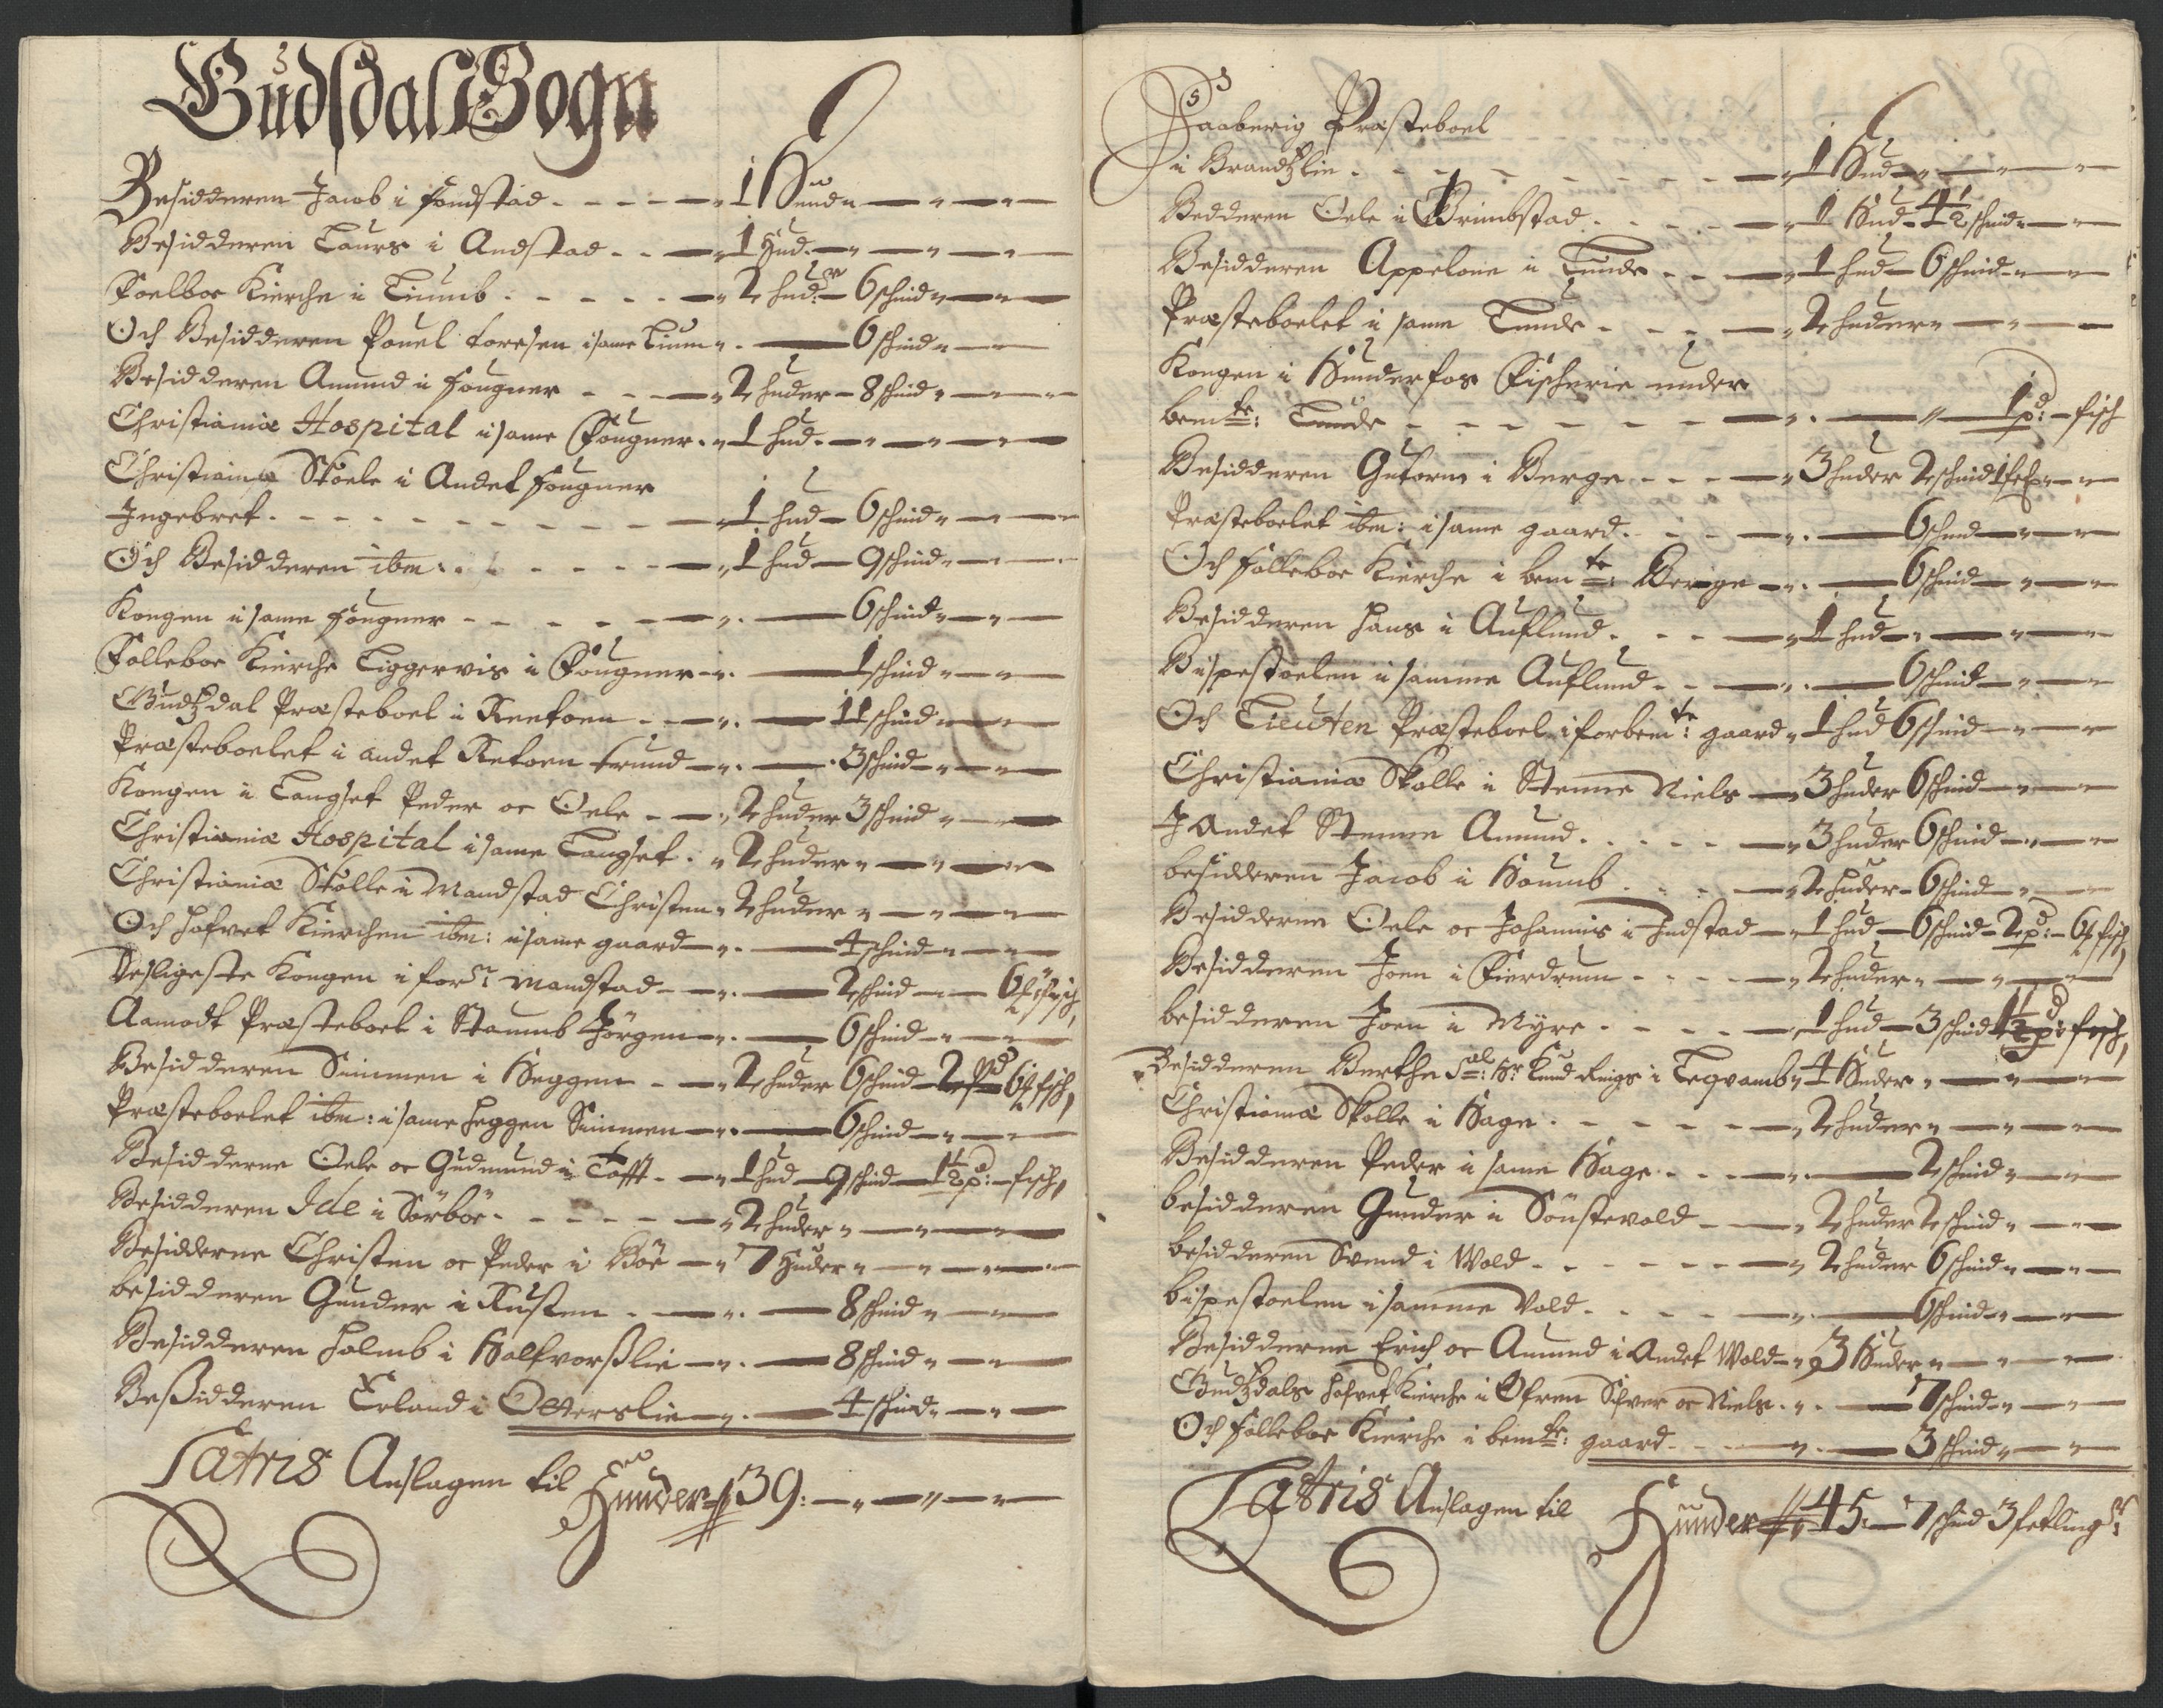 Gudsdals Sogn
Besidderen Jacob i fondstad - - - - 1 Huud
Besidderen Laurs i Andstad - - 1 Hud
Foelboe Kierche i Liumb - - - - 2 huder 6 schind
Och Besidderen Pouel toresen i same Lium - 6 schind
Besidderen Amund i fougner - - - 2 huder - 8 schind
Christianiæ Hospital i same Fougner - 1 hud
Christianiæ Skoele i Andet fougner
Ingebret - - - - 1 hud - 6 schind
Och Besidderen ibm: - - - - 1 hud - 9 schind
Kongen i same fougner - - - - 6 schind
Folleboe Kierche Liggervis i Fougner - 1 schind
Gudtzdal Præsteboel i Reetoen - - 11 schind
Præsteboelet i andet Retoen trund - 3 schind
Kongen i Langset Peder oc Oele - - 2 huder 3 schind
Christianiæ Hospital i same Langset - 2 huder
Christianiæ Skolle i Mandstad Christen 2 huder
Och hofvet Kierchen ibm: i same gaard - 4 schind
Desligeste Kongen i for: Mandstad - - 2 schind - 6 fisch
Aamodt Præsteboel i Staumb Jörgen - 6 schind
Besidderen Simmen i Heggen - - 2 huder 6 schind 2 pd 6 fisch
Præsteboelet ibm: i same heggen Simmen - 6 schind
Besidderne Oele oc Gudmund i Tofft - - 1 hud - 9 schind - 1½ pd: - fisch
Besidderen Ide i Sörböe - - - - 2 huder
Besidderne Christen oc Peder i Böe - 7 Huder
besidderen Gunder i Rusten - - 8 schind
Besidderen holmb i Halfvorßlie - 8 schind
Beßidderen Erland i Otterslie - 4 schind
Latris Anslagen til Huuder 39:
Faaberig Præsteboel
i Brandtzlie - - - - 1 Hud
Bedderen Oele i Grimbstad - - - 1 Hud - 4½ schind
Besidderen Appelone i Lunde - - 1 hud - 6 schind
Præsteboelet i same Lunde - - - 2 huder
Kongen i Hunderfos Fischerie under
bemte: Lunde - - - - - 1 pd: - fisch
Besidderen Gutorm i Berge - - - 3 huder 2 schind 1 fetl:
Præsteboelet ibm: i same gaard - - 6 schind
Och folleboe Kierche i bemte: Berige - 6 schind
Besidderen hans i Auflund - - - 1 hud
Bispestoelen i samme Auflund - - 6 schind
Och Lieuten Præsteboel i forbemte: gaard 1 hud 6 schind
Christianiæ Skolle i Stenne Niels - 3 huder 6 schind
I Andet Stenne Amund - - - - 3 huder 6 schind
besidderen Jacob i Houmb - - - 2 huder - 6 schind
Besidderne Oele oc Johannis i Indstad - 1 hud - 6 schind - 2 pd: - 6 fisch
Besidderen Joen i Fierdrum - - - 2 huder
besidderen Joen i Myre - - - - 1 hud - 3 schind 1½ pd: fisch
Besidderen Berthe Sal: Hr: Knud Rings i Leqvamb 4 Huder
Christiania Skolle i Hage - - - - 2 huder
Besidderen Peder i same Hage - - 2 schind
besidderen Gunder i Sönstevold - 2 huder 2 schind
besidderen Svend i Wold - - - - 2 huder 6 schind
bispestoelen i samme Vold - - - - 6 schind
Besidderne Erich oc Amund i Andet Wold - 3 Huder
Gudtzdals hofvet Kierche i Ofren Sifver oc Niels - 7 schind
Och folleboe Kierche i bemte: gaard - - 3 schind
Latris Anslagen til Huuder 45: - 7 schind 3 fetlingr: